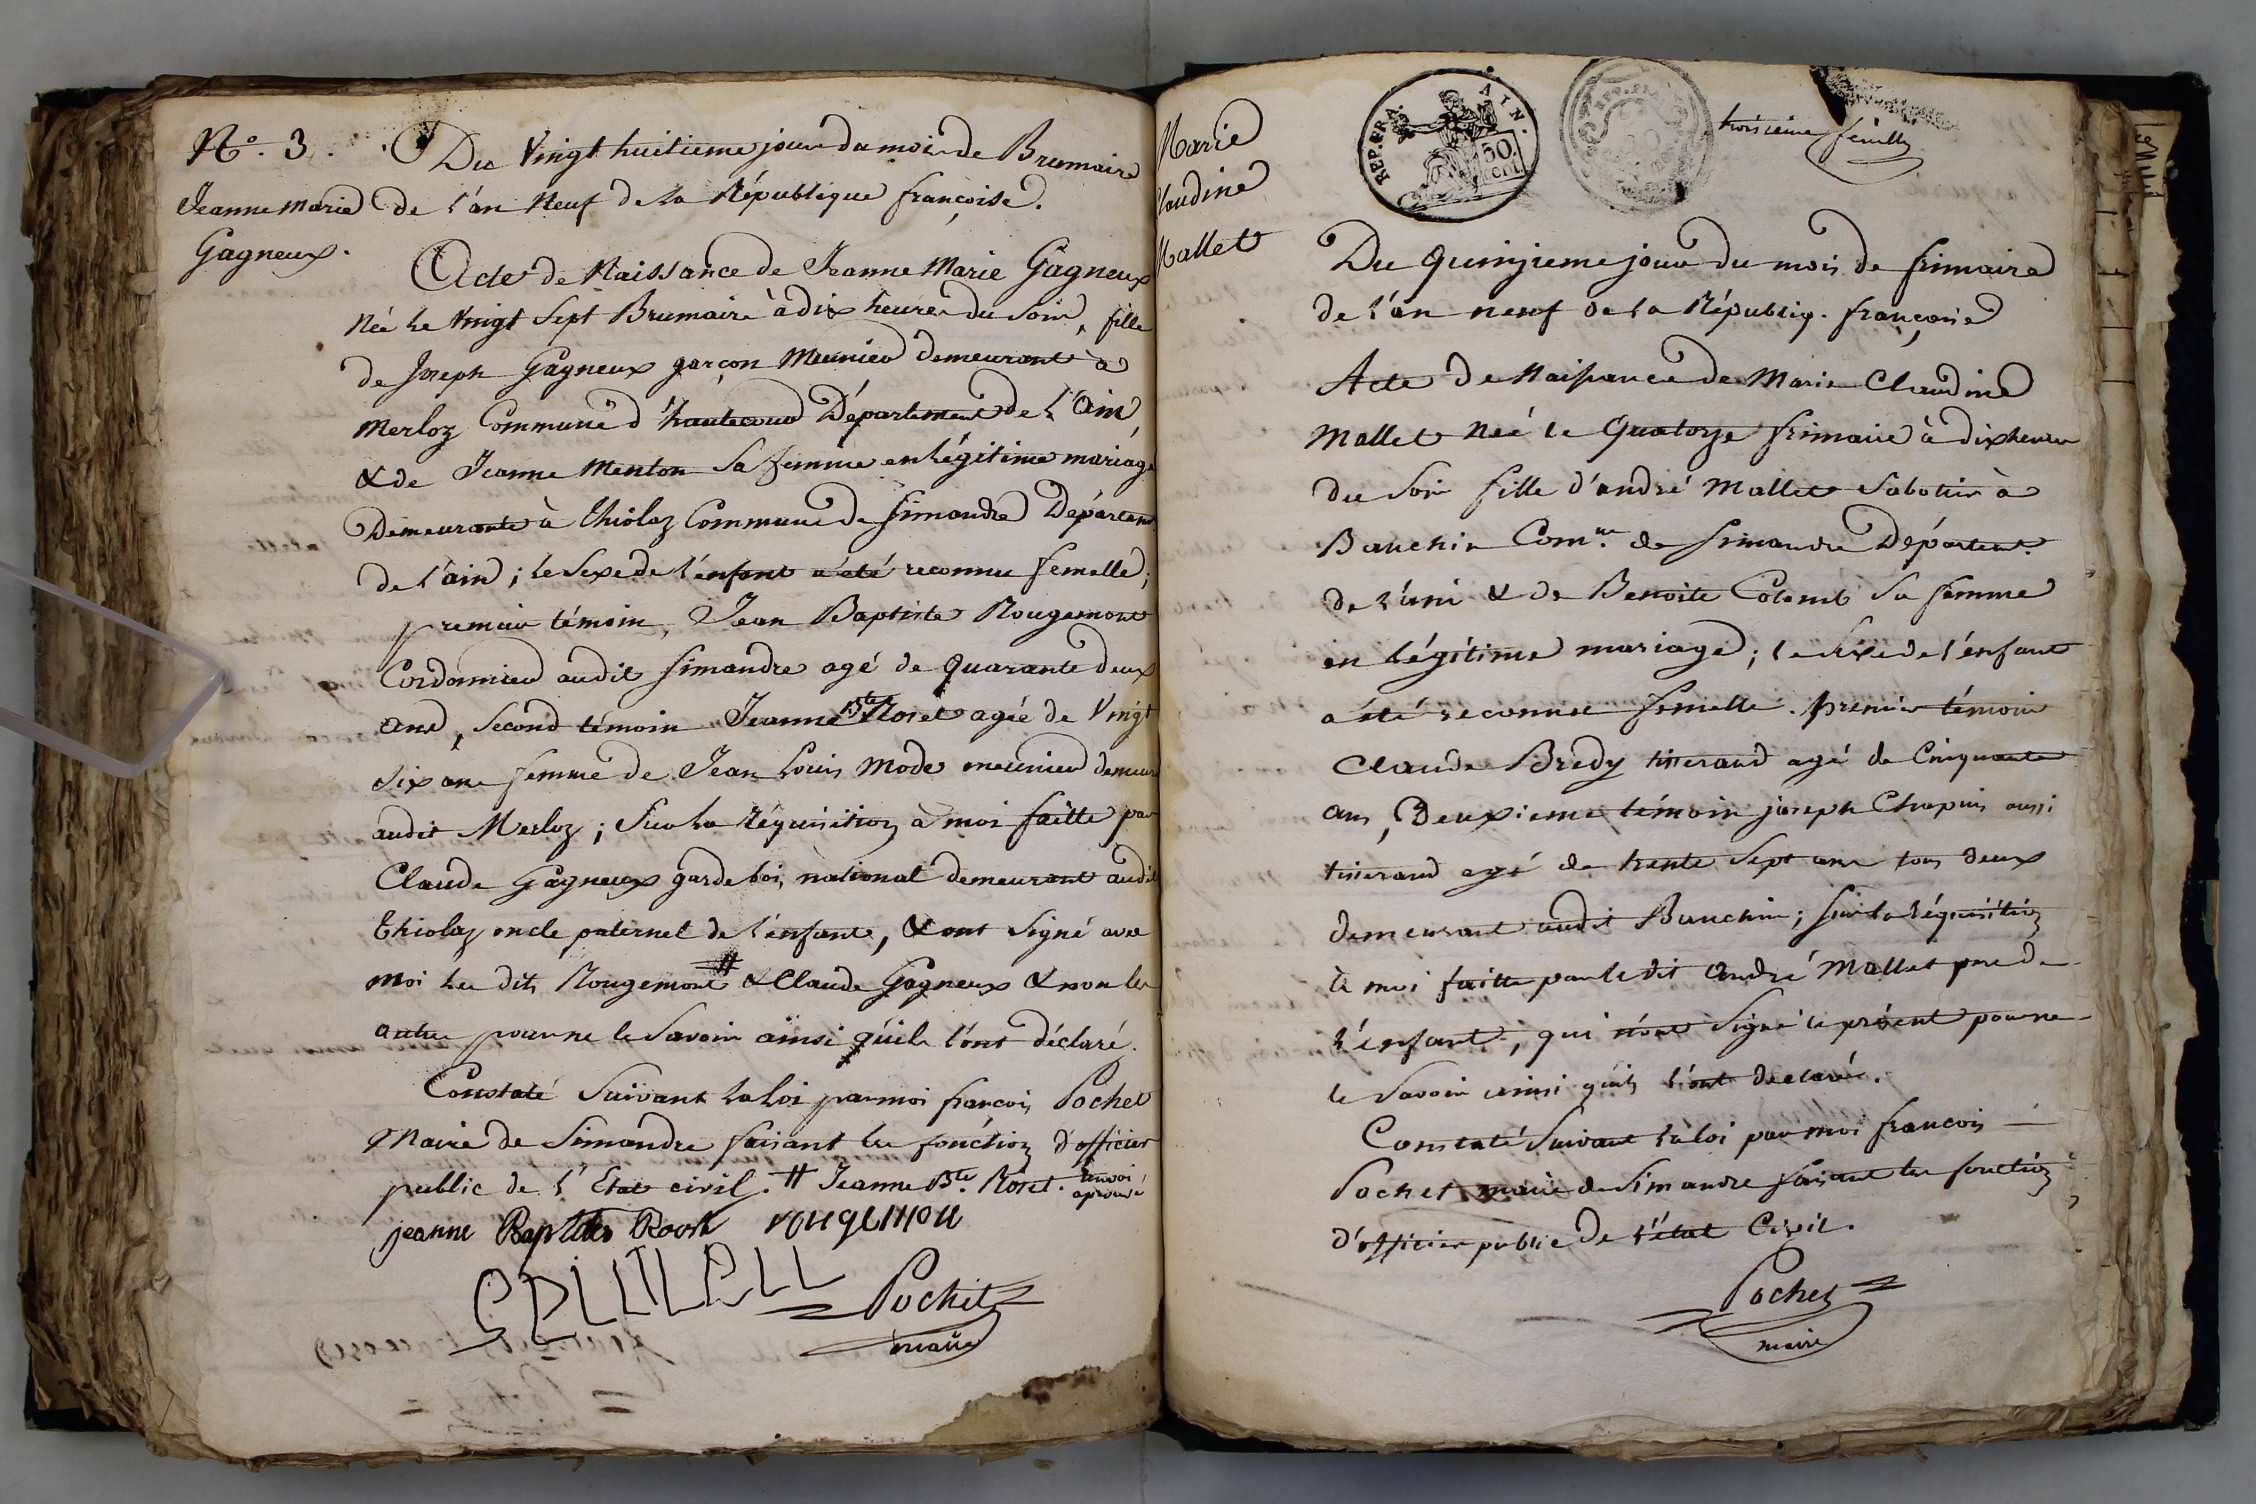 N.o 3.
Jeanne Marie
Gagneux.
Du Vingt huitieme jour du mois de Brumaire
de l'an Neuf de la République françoise.
Acte de Naissance de Jeanne Marie Gagneux
Née le Vingt Sept Brumaire à dix heures du Soir, fille
de Joseph Gagneux garçon Meunier demeurant à
Merloz Commune d'hautecour Département de l'Ain,
& de Jeanne Menton Sa femme en légitime mariage
Demeurante à Thiolaz Commune de Simandre Départem.
de l'ain ; le Sexe de l'enfant a été reconnu femelle ;
premier témoin, Jean Baptiste Rougemont
Cordonnier audit Simandre agé de quarante deux
ans, Second témoin Jeanne Bte Roset agée de Vingt
Six ans femme de Jean Louis Mode meunier demeur
audit Merloz ; Sur la réquisition à moi faitte par
Claude Gagneux garde bois national demeurant audit
Thiolaz oncle paternel de l'enfant, & ont Signé avec
moi les dits Rougemont # & Claude Gagneux & non les
autres pour ne le Savoir ainsi qu'ils l'ont déclaré.
Constaté Suivant la loi par moi françois Pochet
Maire de Simandre faisant les fonction d'officier
public de l'Etat civil. # Jeanne Bte. Roset. renvoi
aprouvé
jeanne Baptiste Roset rougemon
Pochet
maire
Marie
Claudine
Mallet
REP. FRA. AIN.
50
cent
troisieme feuillet
Du Quinzieme jour du mois de frimaire
de l'an neuf de la Républiq. françoise
Acte de Naissance de Marie Claudine
Mallet Née le Quatorze frimaire à dix heures
du Soir fille d'andré Mallet Sabotier à
Banchin Comne. de Simandre Départent.
de l'ain & de Benoite Colomb Sa femme
en légitime mariage ; le Sexe de l'enfant
a été reconnu femelle. premier témoin
Claude Bredy tisserand agé de Cinquante
ans, Deuxieme témoin joseph Chapuis aussi
tisserand agé de trente Sept ans tous deux
demeurant audit Banchin ; Sur la réquisition
à moi faitte par le dit André Mallet pere de
l'enfant, qui n'ont Signé le présent pour ne
le Savoir ainsi qu'ils l'ont déclaré.
Constaté Suivant la loi par moi françois
Pochet maire de Simandre faisant les fonction
d'officier public de l'état Civil.
Pochet
maire